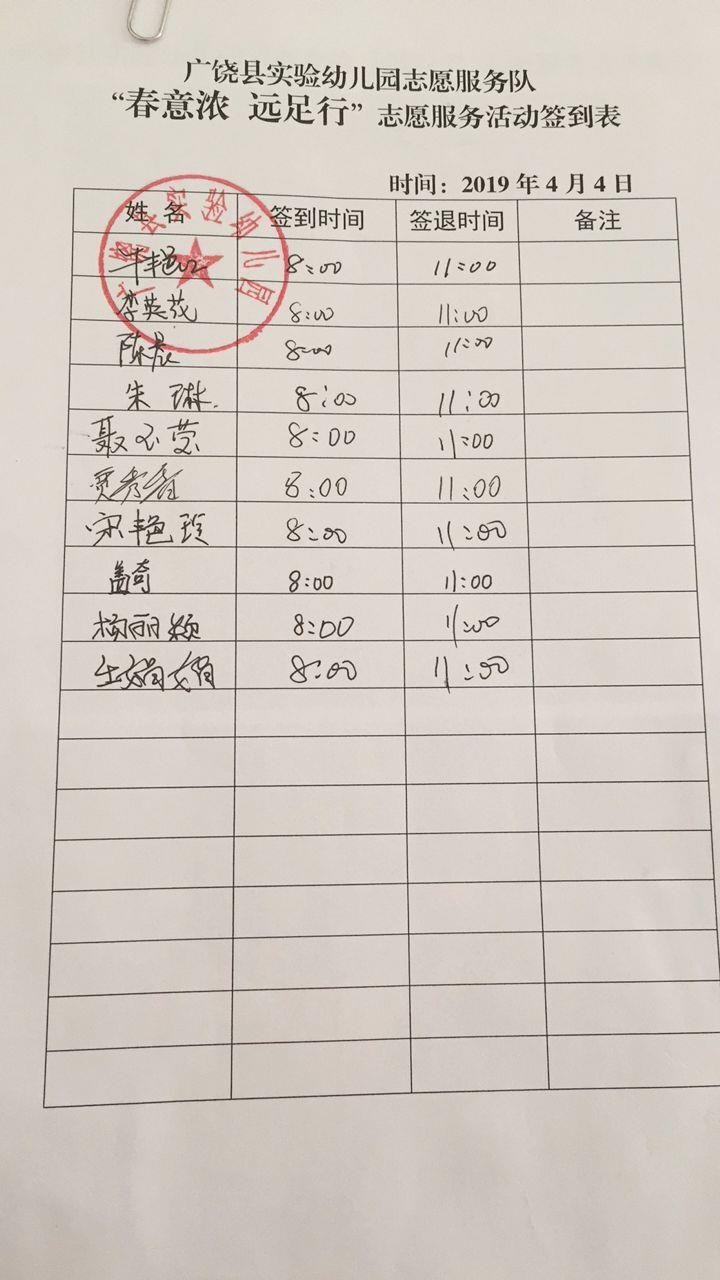 广饶县实验幼儿园志愿服务队
“春意浓 远足行”志愿服务活动签到表
时间：2019年4月4日
姓名 签到时间 签退时间 备注
广饶县实验幼儿园
8:00 11:00
李英茂 8:00 11:00
陈晨 8:00 11:00
朱琳. 8:00 11:00
聂玉莹 8:00 11:00
贾秀香 8:00 11:00
宋艳玲 8:00 11:00
盖奇 8:00 11:00
杨丽颖 8:00 11:00
8:00 11:00